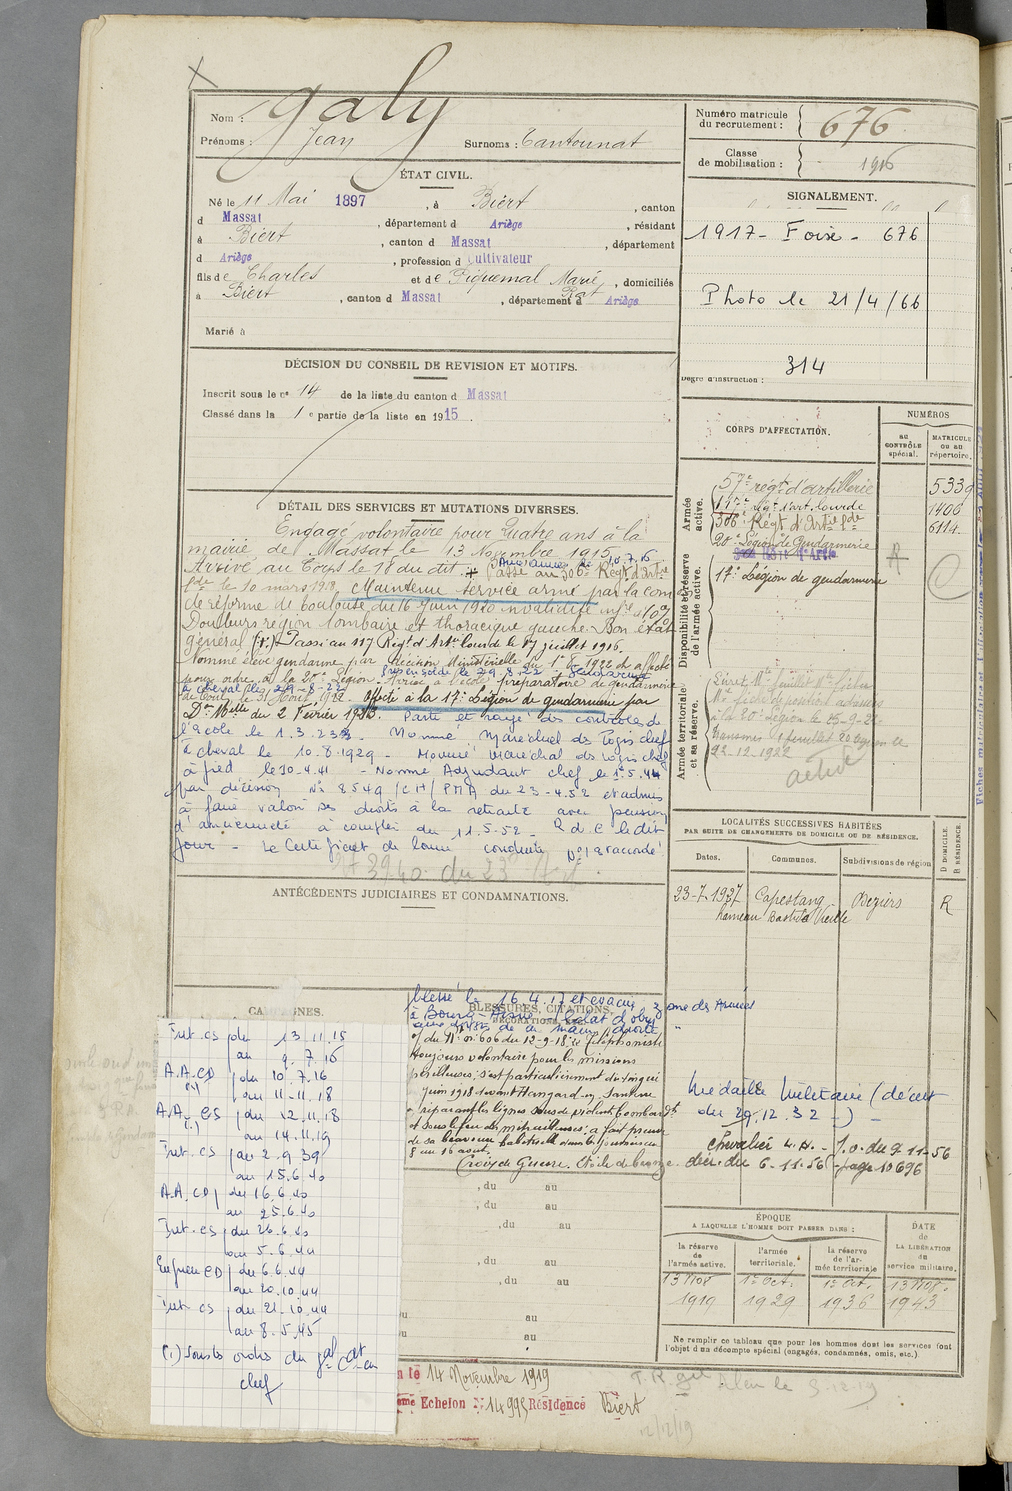 Nom : Galy
Prénoms : Jean Surnoms : Cantounat
ÉTAT CIVIL.
Né le 11 Mai 1897, à Biert, canton
d Massat, département d Ariège, résidant
à Biert, canton d Massat, département
d Ariège, profession d Cultivateur
fils de Charles et de Piquemal Marie, domiciliés
à Biert, canton d Massat, département d Ariège
Marié à
DÉCISION DU CONSEIL DE REVISION ET MOTIFS.
Inscrit sous le n° 14 de la liste du canton d Massat
Classé dans la 1 e partie de la liste en 1915.
DÉTAIL DES SERVICES ET MUTATIONS DIVERSES.
Engagé volontaire pour quatre ans à la
mairie de Massat le 13 Novembre 1915
Arrivé au Corps le 18 du dit. + Aux armées le 10.7.16
Passé au 306e Régt d'Artie
pde le 10 mars 1918. Maintenu service armé par la com on
de réforme de Toulouse du 16 Juin 1920 invalidité infre à 10%
Douleurs région lombaire et thoracique gauche. Bon état
général (+) Passé au 117 Régt d'Artie lourde le 17 juillet 1916.
Nommé élève gendarme par décision Ministérielle du 1er 8 1922 et affecté
pour ordre à la 20e Légion. Arrivé à l'école préparatoire de gendarmerie
à cheval le 29-8-22
de Toul le 31 Août 1922. Affecté à la 17e Légion de gendarmerie par
Don Mlle du 2 Février 1923. Parti et rayé des contrôles de
l'école le 1.3.23. Nommé Maréchal des Logis chef
à cheval le 10.8.1929 - Nommé Maréchal des logis chef
à pied le 30-4-41 - Nommé Adjudant chef le 1.5.44
par décision N° 8549/CH/PMA du 23-4-52 est admis
à faire valoir ses droits à la retraite avec pension
d'ancienneté à compter du 11-5-52 - R d C le dit
jour - Le Certificat de bonne conduite lui a accordé
3940 du 23
ANTÉCÉDENTS JUDICIAIRES ET CONDAMNATIONS.
CA NES.
Int. CS du 13.11.15
au 9.7.16
A.A. CD du 10.7.16
(1) au 11-11-18
A.A. CS du 12.11.18
(1) au 14.11.19
Int. CS du 2.9.39
au 15.6.40
A.A. CD du 16.6.40
au 25.6.40
Int. CS du 26.6.40
au 5.6.44
Guerre CD du 6.6.44
au 20.10.44
Int CS du 21.10.44
au 8.5.45
(1) Sous les ordres du Gal Ct en
chef
BLESSURES, CITATIONS,
DÉCORATIONS, ETC.
blessé le 16.4.17 et évacué, zone des Armées
à Bourg-Aisne - Eclat d'obus
de la main droite
O/ du Rt n° 606 du 12-9-18 : Téléphoniste
toujours volontaire pour les missions
périlleuses, s'est particulièrement distingué
Juin 1918 devant Hangard-en-Santerre
à réparant les lignes sous de violents bombardts
et sous le feu des mitrailleuses, a fait preuve
de sa bravoure habituelle dans les journées du
8 au 16 août.
Croix de Guerre. Etoile de bronze.
, du au
, du au
, du au
, du au
, du au
u au
u au
n le 14 Novembre 1919
ème Echelon N° 14995 Résidence Biert
Numéro matricule
du recrutement : 676
Classe
de mobilisation : 1916
SIGNALEMENT.
1917 - Foix - 676
Photo le 21/4/66
314
Degré d'instruction :
CORPS D'AFFECTATION.
NUMÉROS
au
CONTRÔLE
spécial.
MATRICULE
ou au
répertoire.
Armée
active.
57e régt d'artillerie 5339
117e régt d'art. lourde 1400
306e Régt d'Artie pde 6114
20e Légion de Gendarmerie
Disponibilité et réserve
de l'armée active.
17e Légion de gendarmerie
A
Armée territoriale
et sa réserve.
Livret Mle feuillet Mle fiches
à la 20e Légion le 15-9-22
Transmis 1 feuillet 20 Légion le
22-12-1922
active
LOCALITÉS SUCCESSIVES HABITÉES
PAR SUITE DE CHANGEMENTS DE DOMICILE OU DE RÉSIDENCE.
Dates. Communes. Subdivisions de région
D DOMICILE.
R RÉSIDENCE
23-7-1927 Capestang Béziers R
hameau Bastide Vieille
Médaille Militaire (décret
du 29.12.32 -)
Chevalier L.H. - J.O. du 9-11-56
décr. du 6-11-56 - page 10696
ÉPOQUE
A LAQUELLE L'HOMME DOIT PASSER DANS :
la réserve
de
l'armée active. l'armée
territoriale. la réserve
de l'ar-
mée territoriale
DATE
de
LA LIBÉRATION
du
service militaire.
13 Nov. 1er Oct. 1er Oct. 13 Nov.
1919 1929 1936 1943
Ne remplir ce tableau que pour les hommes dont les services font
l'objet d'un décompte spécial (engagés, condamnés, omis, etc.).
12/12/19